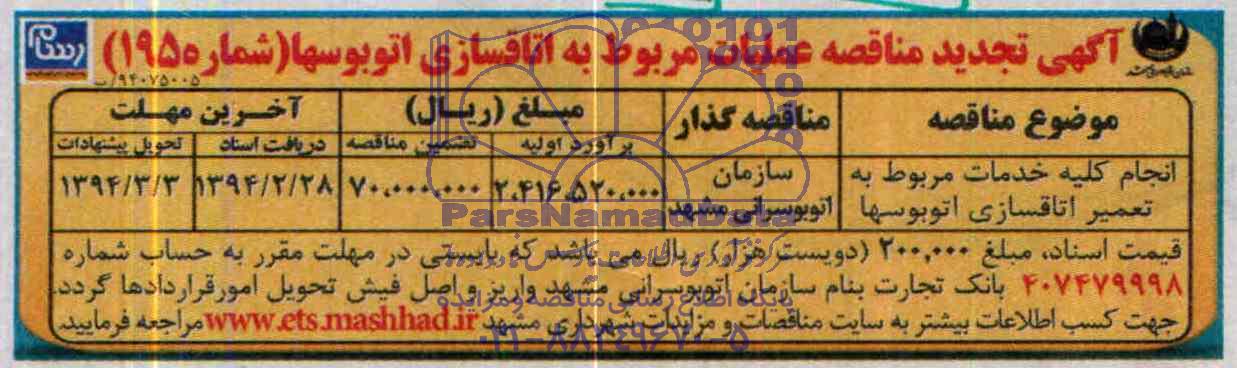 آگهی تجدید مناقصه عملیات مربوط به اتاقسازی اتوبوسها(شماره۱۹۵)
رسام
۹۴۰۷۵۰۰۵/ب
موضوع مناقصه
مناقصه گذار
مبلغ (ریال)
آخرین مهلت
برآورد اولیه
تضمین مناقصه
دریافت اسناد
تحویل پیشنهادات
انجام کلیه خدمات مربوط به
تعمیر اتاقسازی اتوبوسها
سازمان
اتوبوسرانی مشهد
۲،۴۱۶،۵۲۰،۰۰۰
۷۰،۰۰۰،۰۰۰
۱۳۹۴/۲/۲۸
۱۳۹۴/۳/۳
ParsNamadData
قیمت اسناد، مبلغ ۲۰۰،۰۰۰ (دویست هزار) ریال می باشد که بایستی در مهلت مقرر به حساب شماره
۴۰۷۴۷۹۹۹۸ بانک تجارت بنام سازمان اتوبوسرانی مشهد واریز و اصل فیش تحویل امورقراردادها گردد.
جهت کسب اطلاعات بیشتر به سایت مناقصات و مزایدات شهرداری مشهد www.ets.mashhad.ir مراجعه فرمایید.
پایگاه اطلاع رسانی مناقصه و مزایده
۰۲۱-۸۸۳۴۹۶۷۰-۵